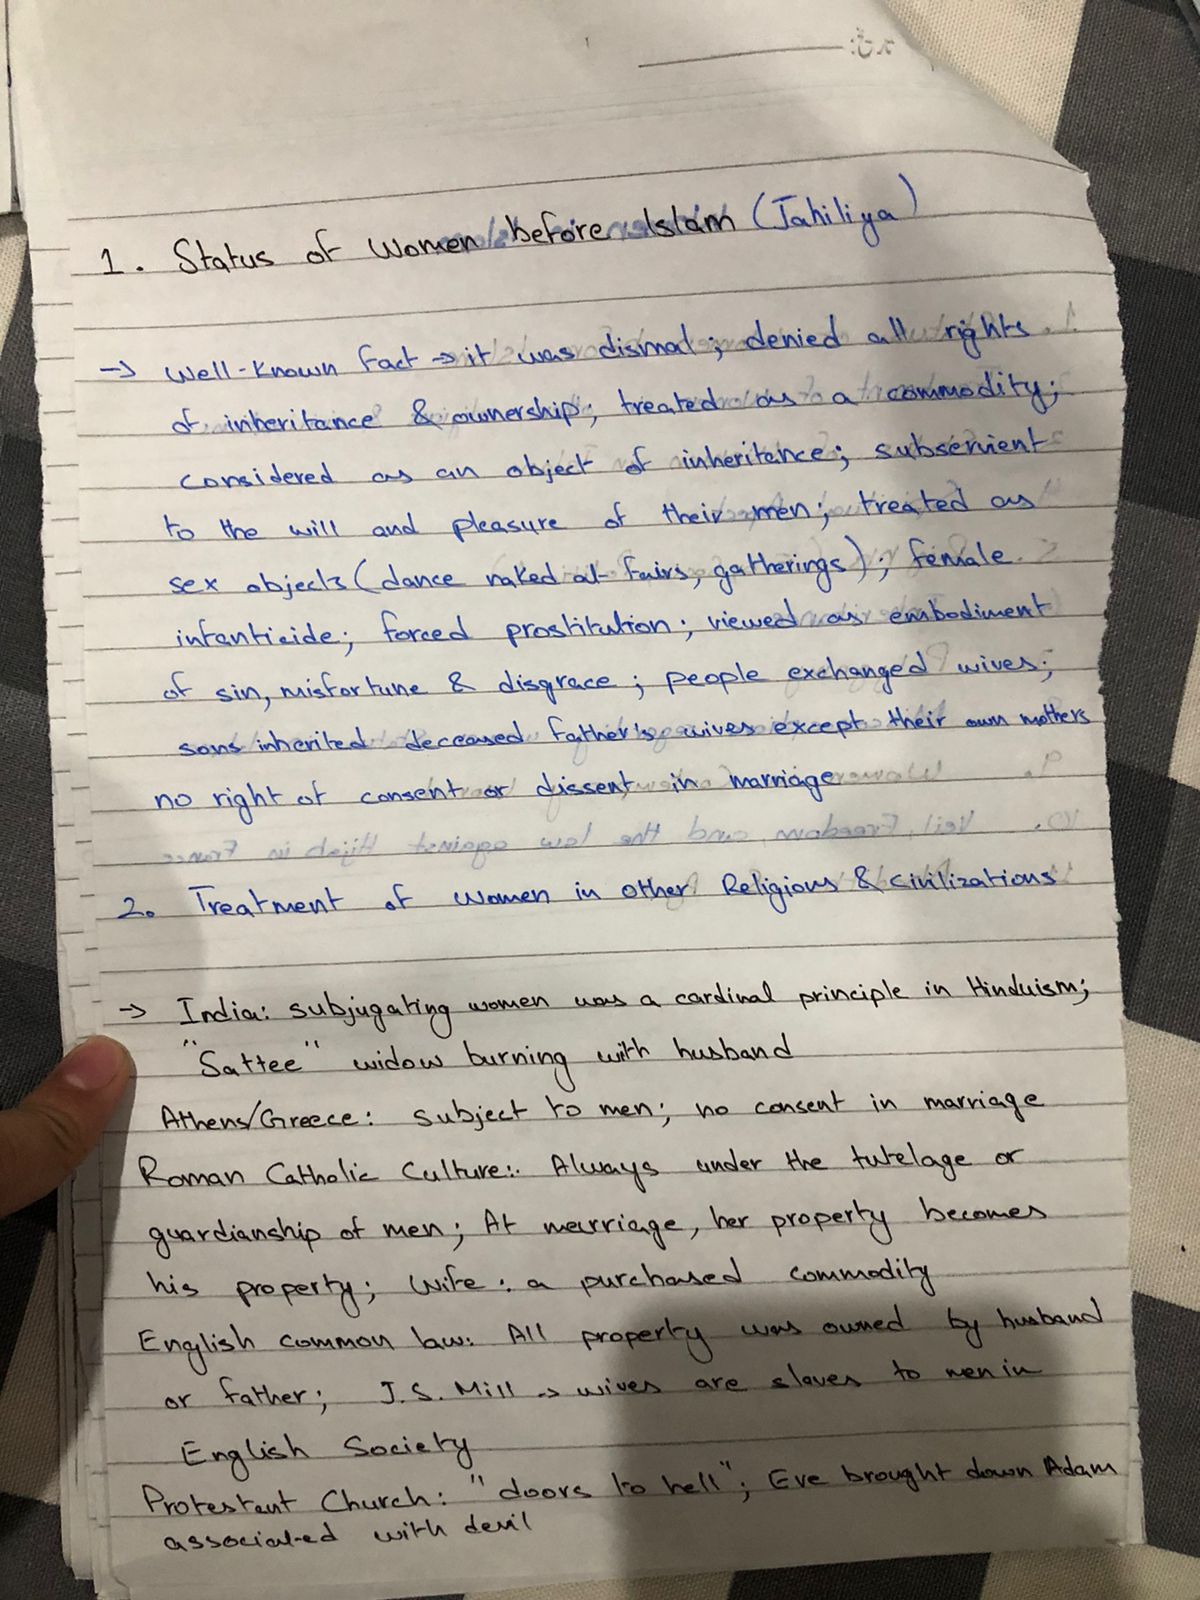 1. Status of Women before Islam (Jahiliya)
→ Well-Known Fact → it was dismal; denied all rights
of inheritance & ownership; treated as a commodity;
considered as an object of inheritance; subservient
to the will and pleasure of their men; treated as
sex objects (dance naked at fairs, gatherings); female
infanticide; forced prostitution; viewed as embodiment
of sin, misfortune & disgrace; people exchanged wives;
sons inherited deceased father's wives except their own mothers
no right of consent or dissent in marriage
2. Treatment of Women in other Religions & Civilizations
→ India: subjugating women was a cardinal principle in Hinduism;
"Sattee" widow burning with husband
Athens/Greece: subject to men; no consent in marriage
Roman Catholic Culture: Always under the tutelage or
guardianship of men; At marriage, her property becomes
his property; Wife: a purchased commodity
English common law: All property was owned by husband
or father; J.S. Mill → wives are slaves to men in
English Society
Protestant Church: "doors to hell"; Eve brought down Adam
associated with devil